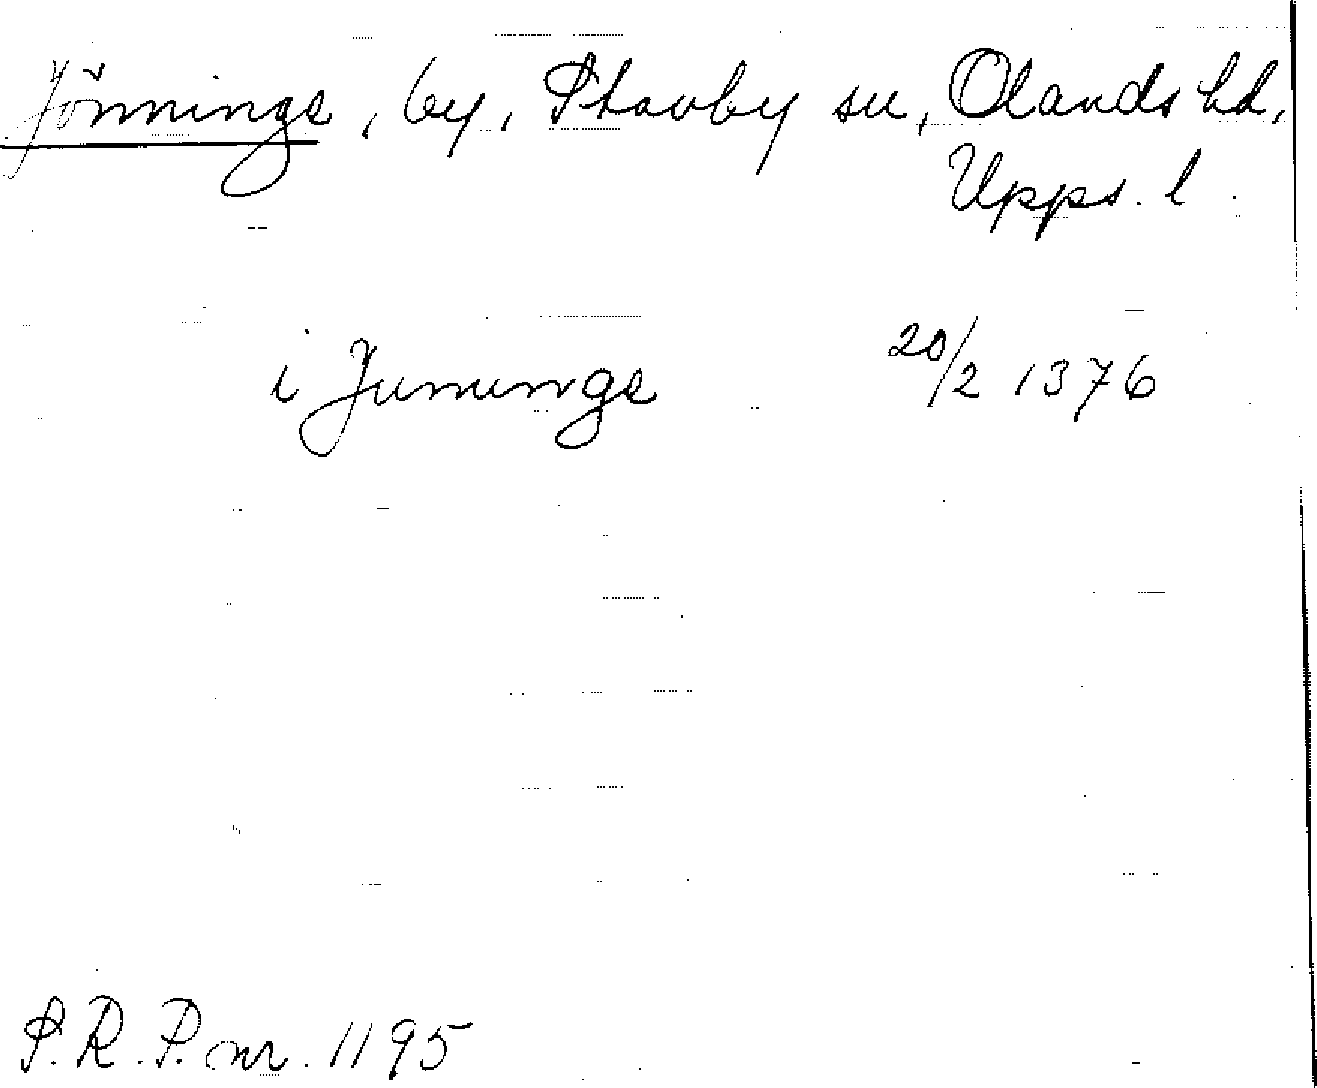 Jönninge, by, Stavby sn, Olands hd,
Upps. l.
i Jununge 20/2 1376
S.R.P. nr. 1195